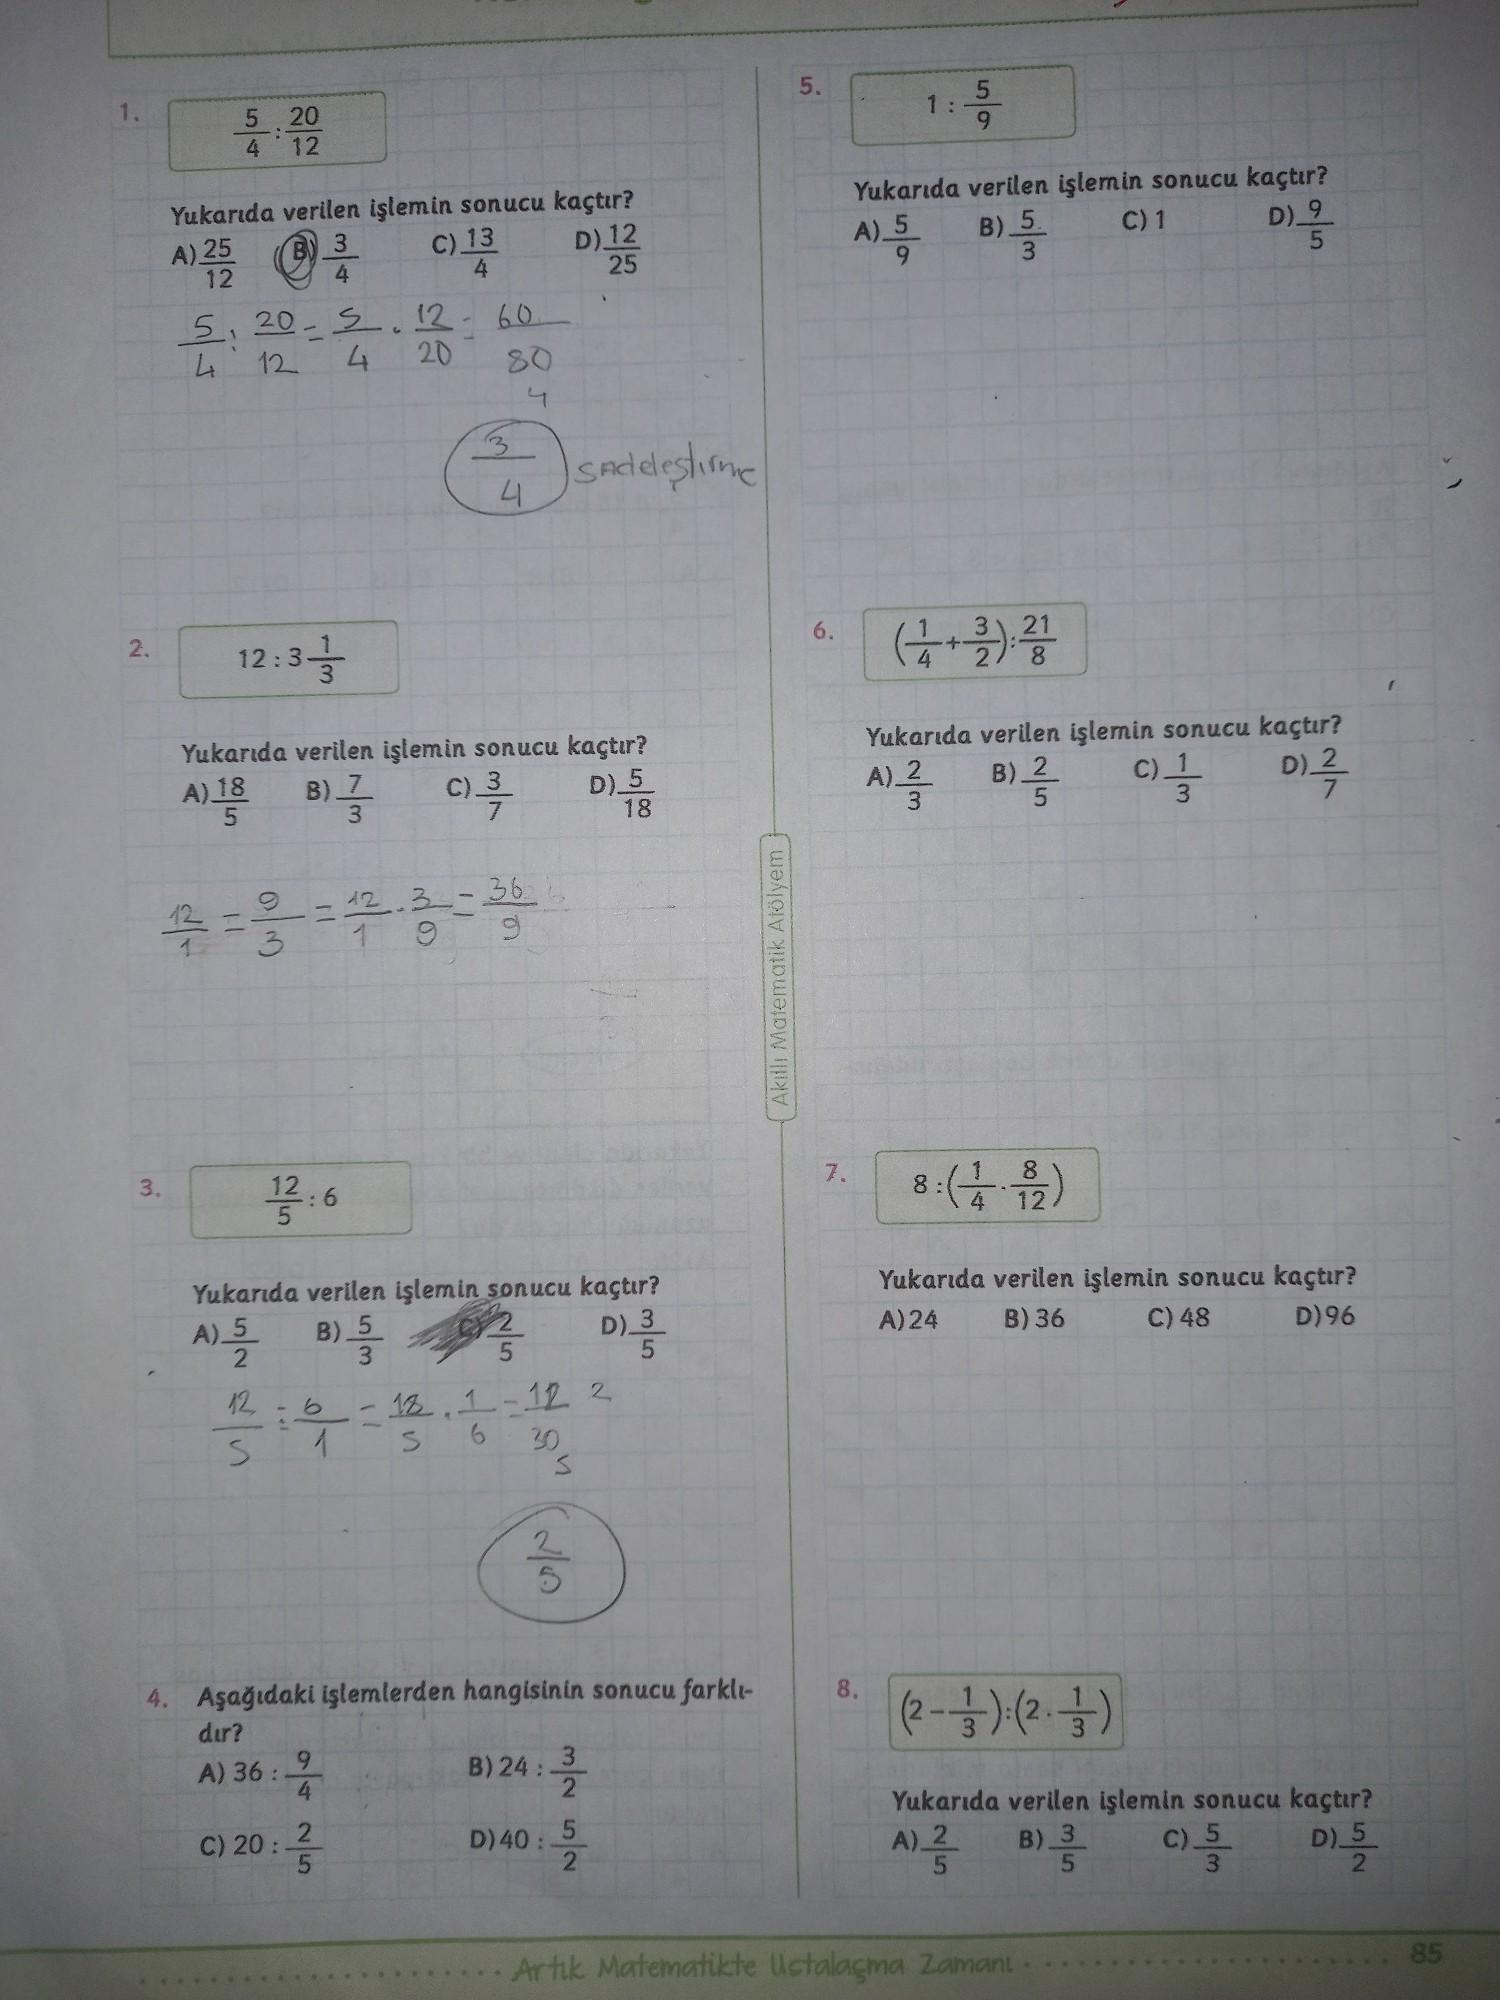 1.
5/4 : 20/12
Yukarıda verilen işlemin sonucu kaçtır?
A) 25/12 B) 3/4 C) 13/4 D) 12/25
5/4 : 20/12 = 5/4 . 12/20 = 60/80
4
3/4 sadeleştirme
2.
12 : 3 1/3
Yukarıda verilen işlemin sonucu kaçtır?
A) 18/5 B) 7/3 C) 3/7 D) 5/18
12/1 = 9/3 = 12/1 . 3/9 = 36/9
3.
12/5 : 6
Yukarıda verilen işlemin sonucu kaçtır?
A) 5/2 B) 5/3 C) 2/5 D) 3/5
12/5 : 6/1 = 12/5 . 1/6 = 12/30 2
5
2/5
4. Aşağıdaki işlemlerden hangisinin sonucu farklı-
dır?
A) 36 : 9/4 B) 24 : 3/2
C) 20 : 2/5 D) 40 : 5/2
Akıllı Matematik Atölyem
5.
1 : 5/9
Yukarıda verilen işlemin sonucu kaçtır?
A) 5/9 B) 5/3 C) 1 D) 9/5
6.
(1/4 + 3/2) : 21/8
Yukarıda verilen işlemin sonucu kaçtır?
A) 2/3 B) 2/5 C) 1/3 D) 2/7
7.
8 : (1/4 . 8/12)
Yukarıda verilen işlemin sonucu kaçtır?
A) 24 B) 36 C) 48 D) 96
8.
(2 - 1/3) : (2 . 1/3)
Yukarıda verilen işlemin sonucu kaçtır?
A) 2/5 B) 3/5 C) 5/3 D) 5/2
Artık Matematikte Ustalaşma Zamanı
85